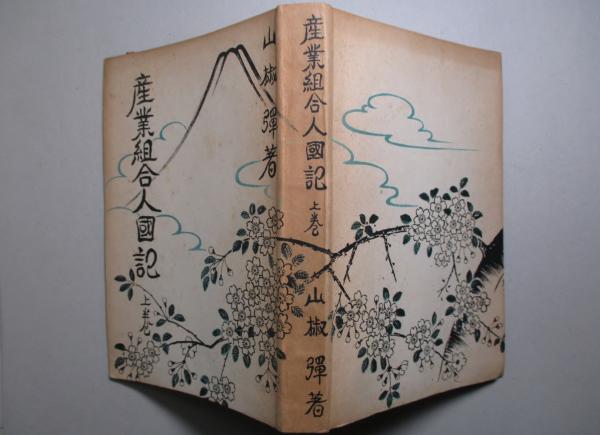 産業組合人國記
上巻
山椒彈著
産業組合人國記
上巻
山椒彈著